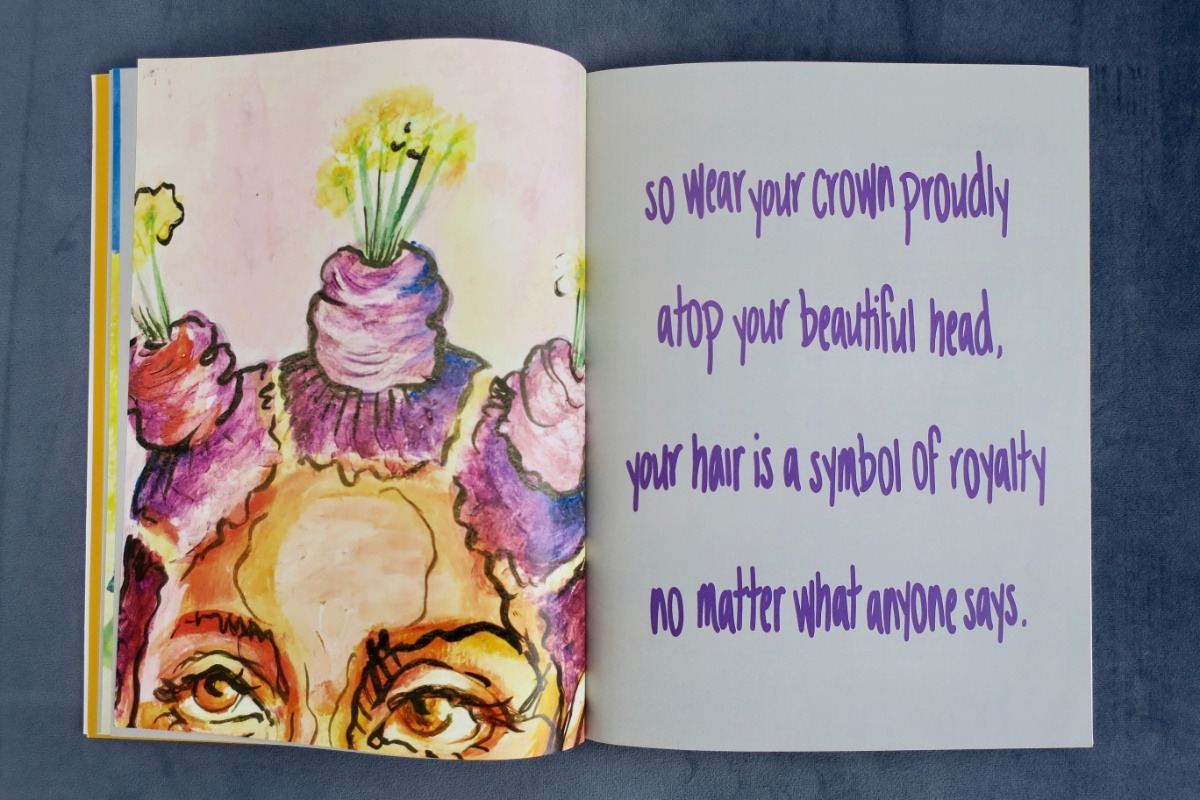 so wear your crown proudly
atop your beautiful head,
your hair is a symbol of royalty
no matter what anyone says.